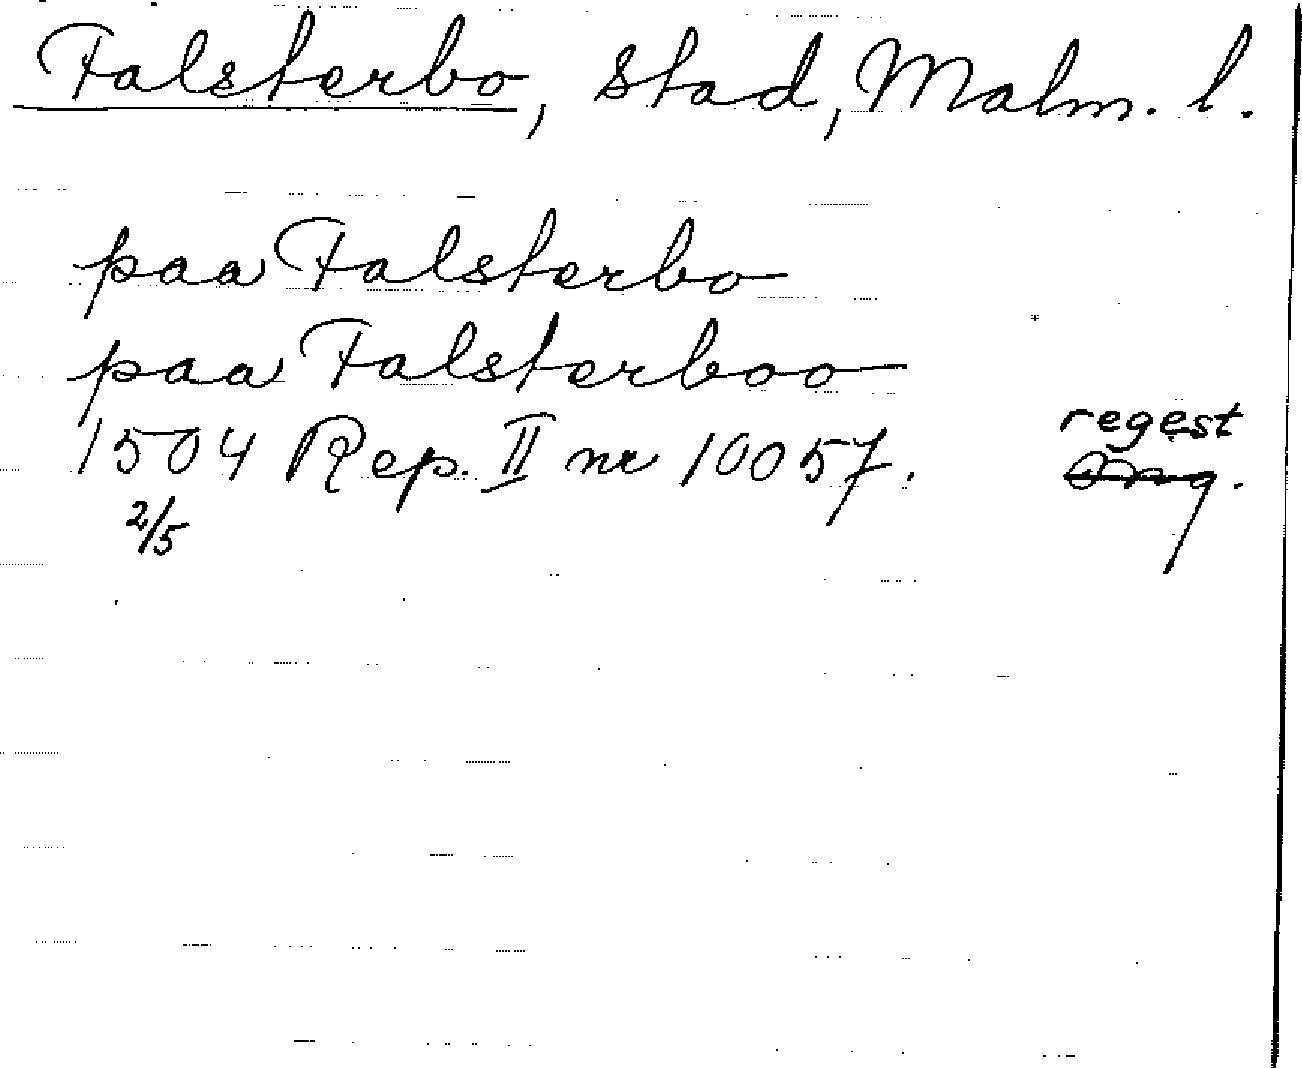 Falsterbo, stad, Malm. l.
paa Falsterbo
paa Falsterboo
1504 Rep. II nr 10057. regest
2/5